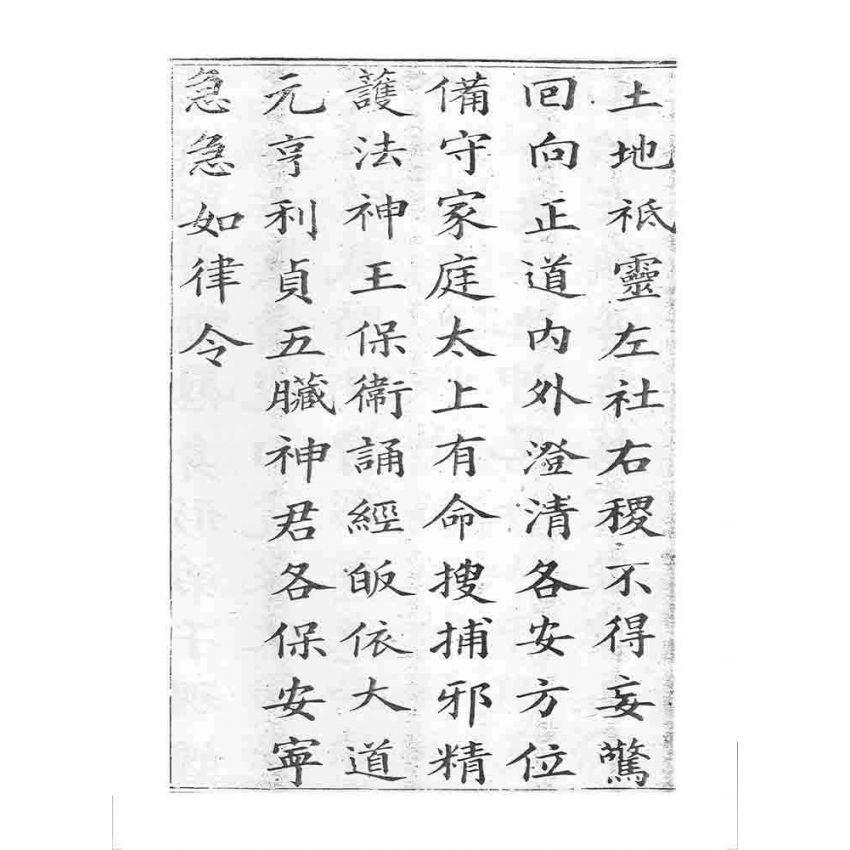 土地祗靈左社右稷不得妄驚
回向正道内外澄清各安方位
備守家庭太上有命搜捕邪精
護法神王保衛誦經皈依大道
元亨利貞五臟神君各保安寧
急急如律令